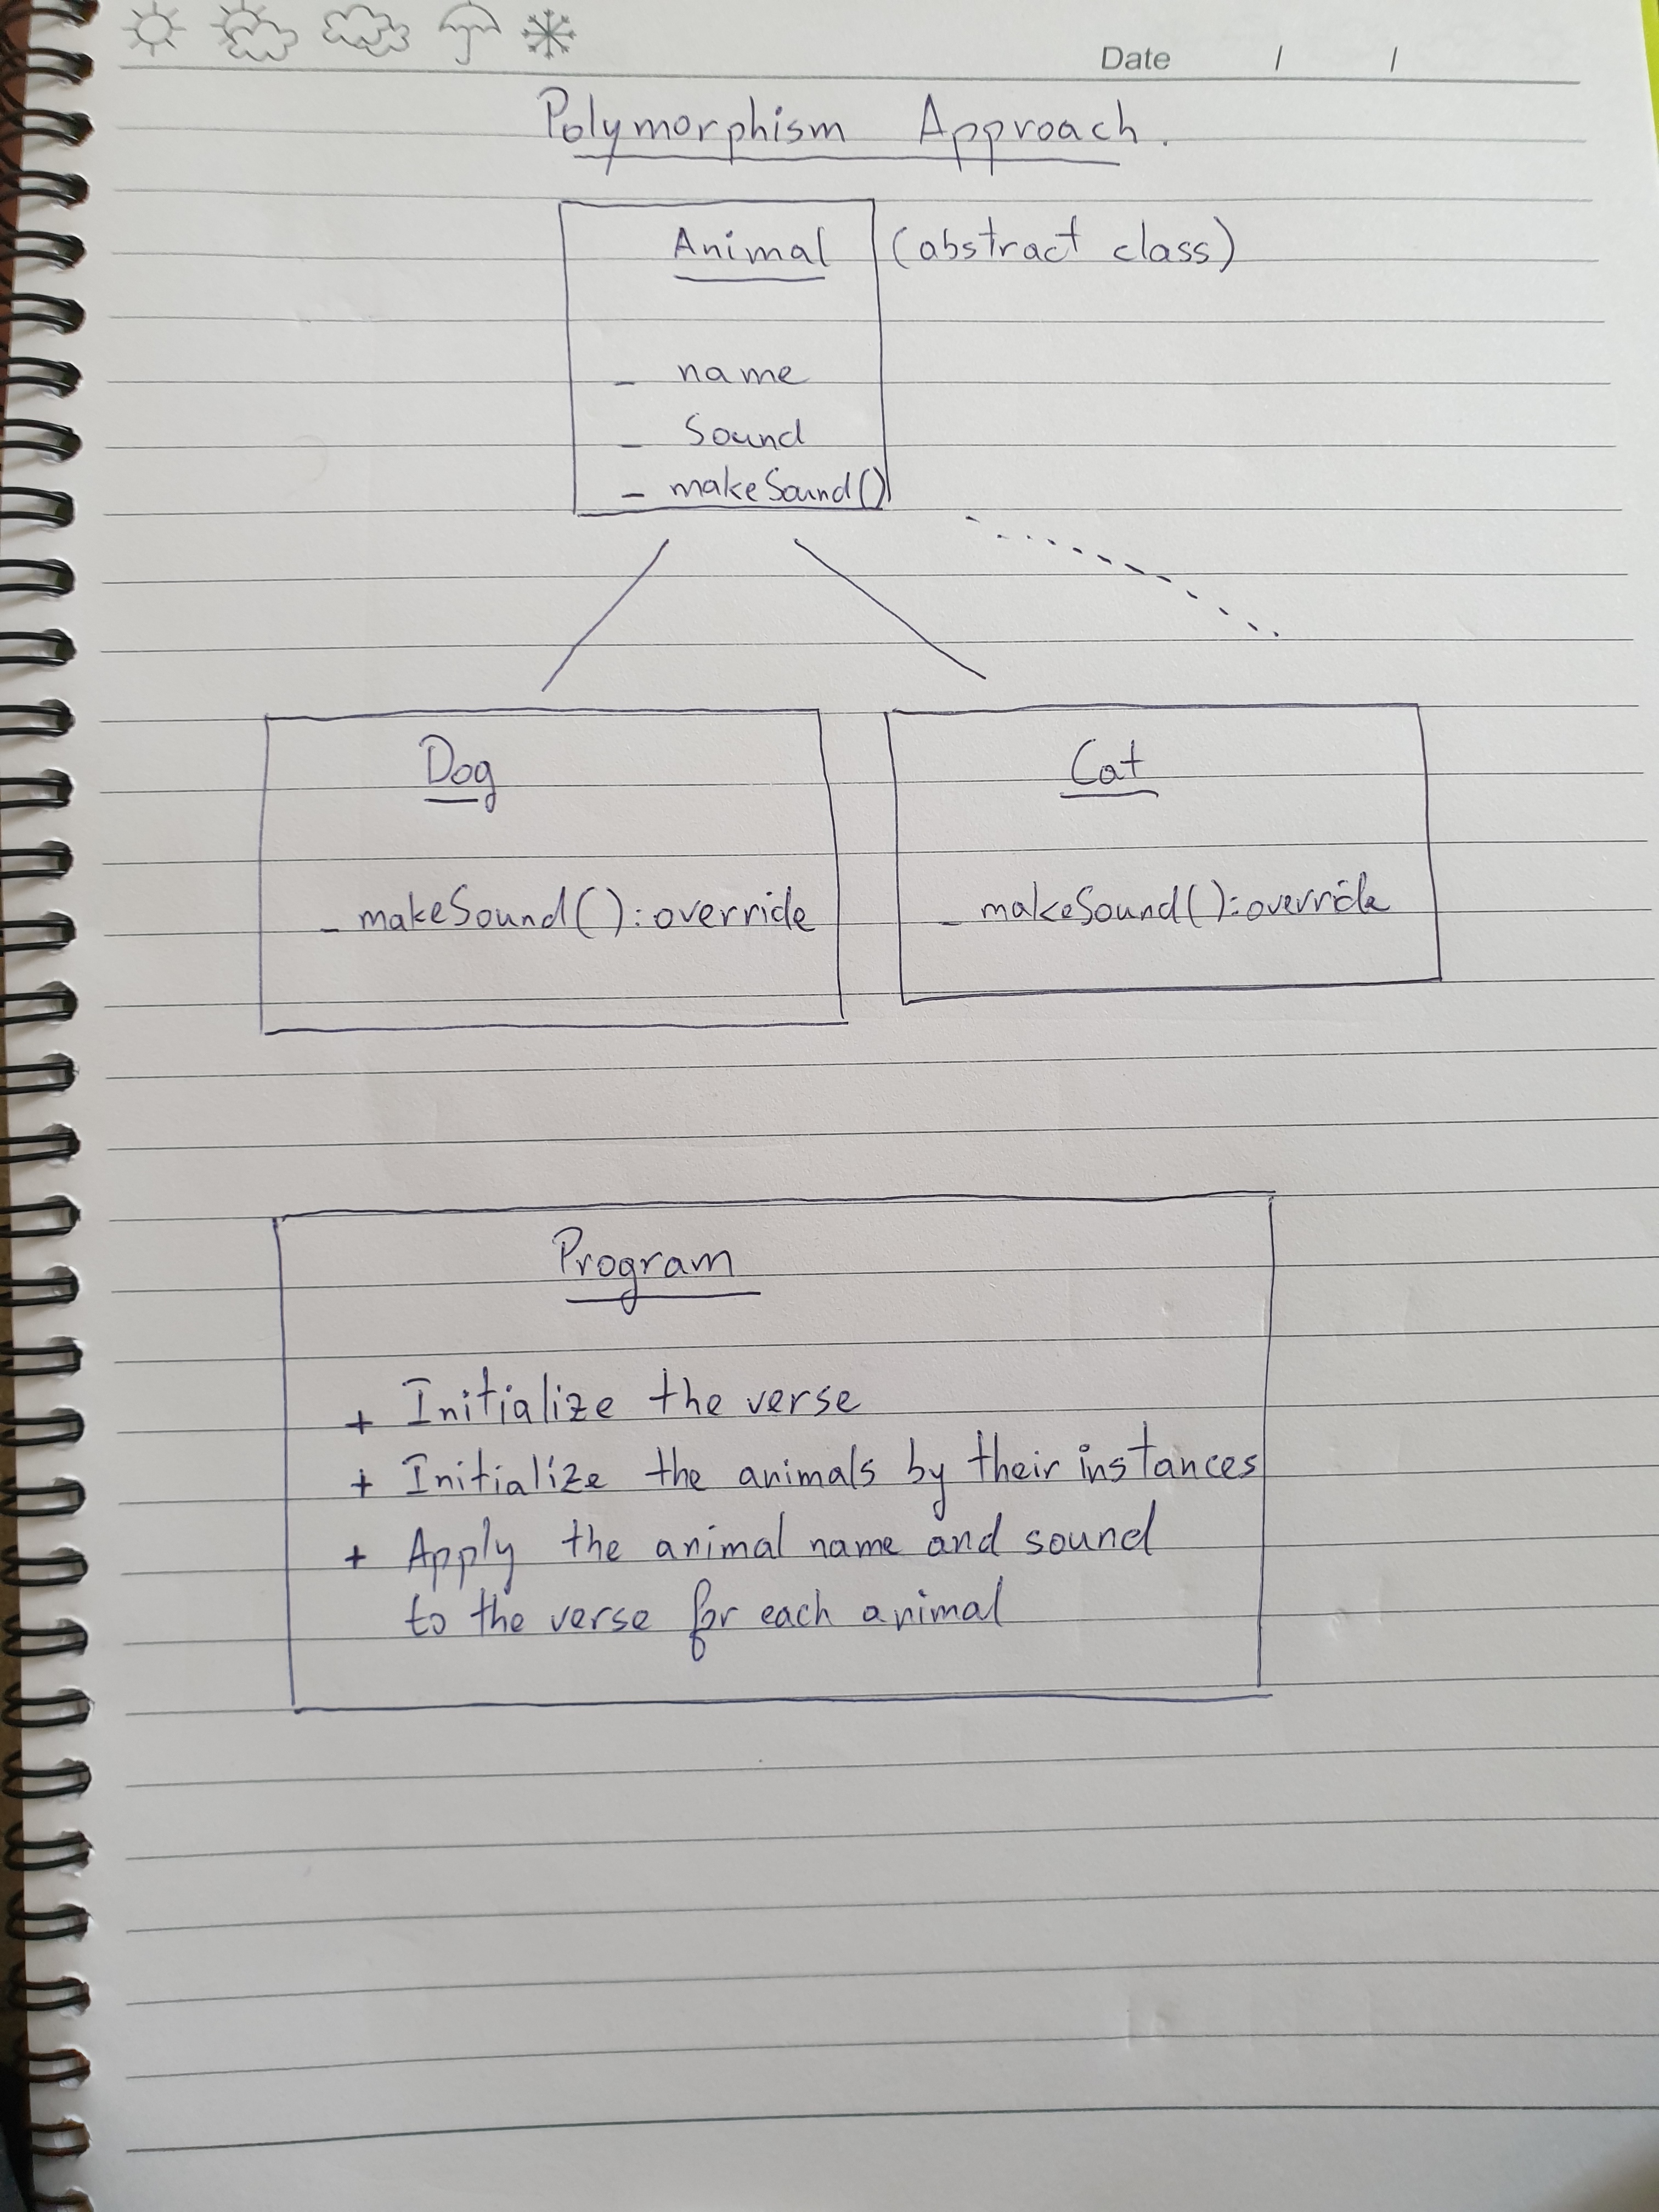 Date / /
Polymorphism Approach.
Animal (abstract class)
- name
- Sound
- makeSound()
Dog
- makeSound(): override
Cat
- makeSound(): override
Program
+ Initialize the verse
+ Initialize the animals by their instances
+ Apply the animal name and sound
to the verse for each animal